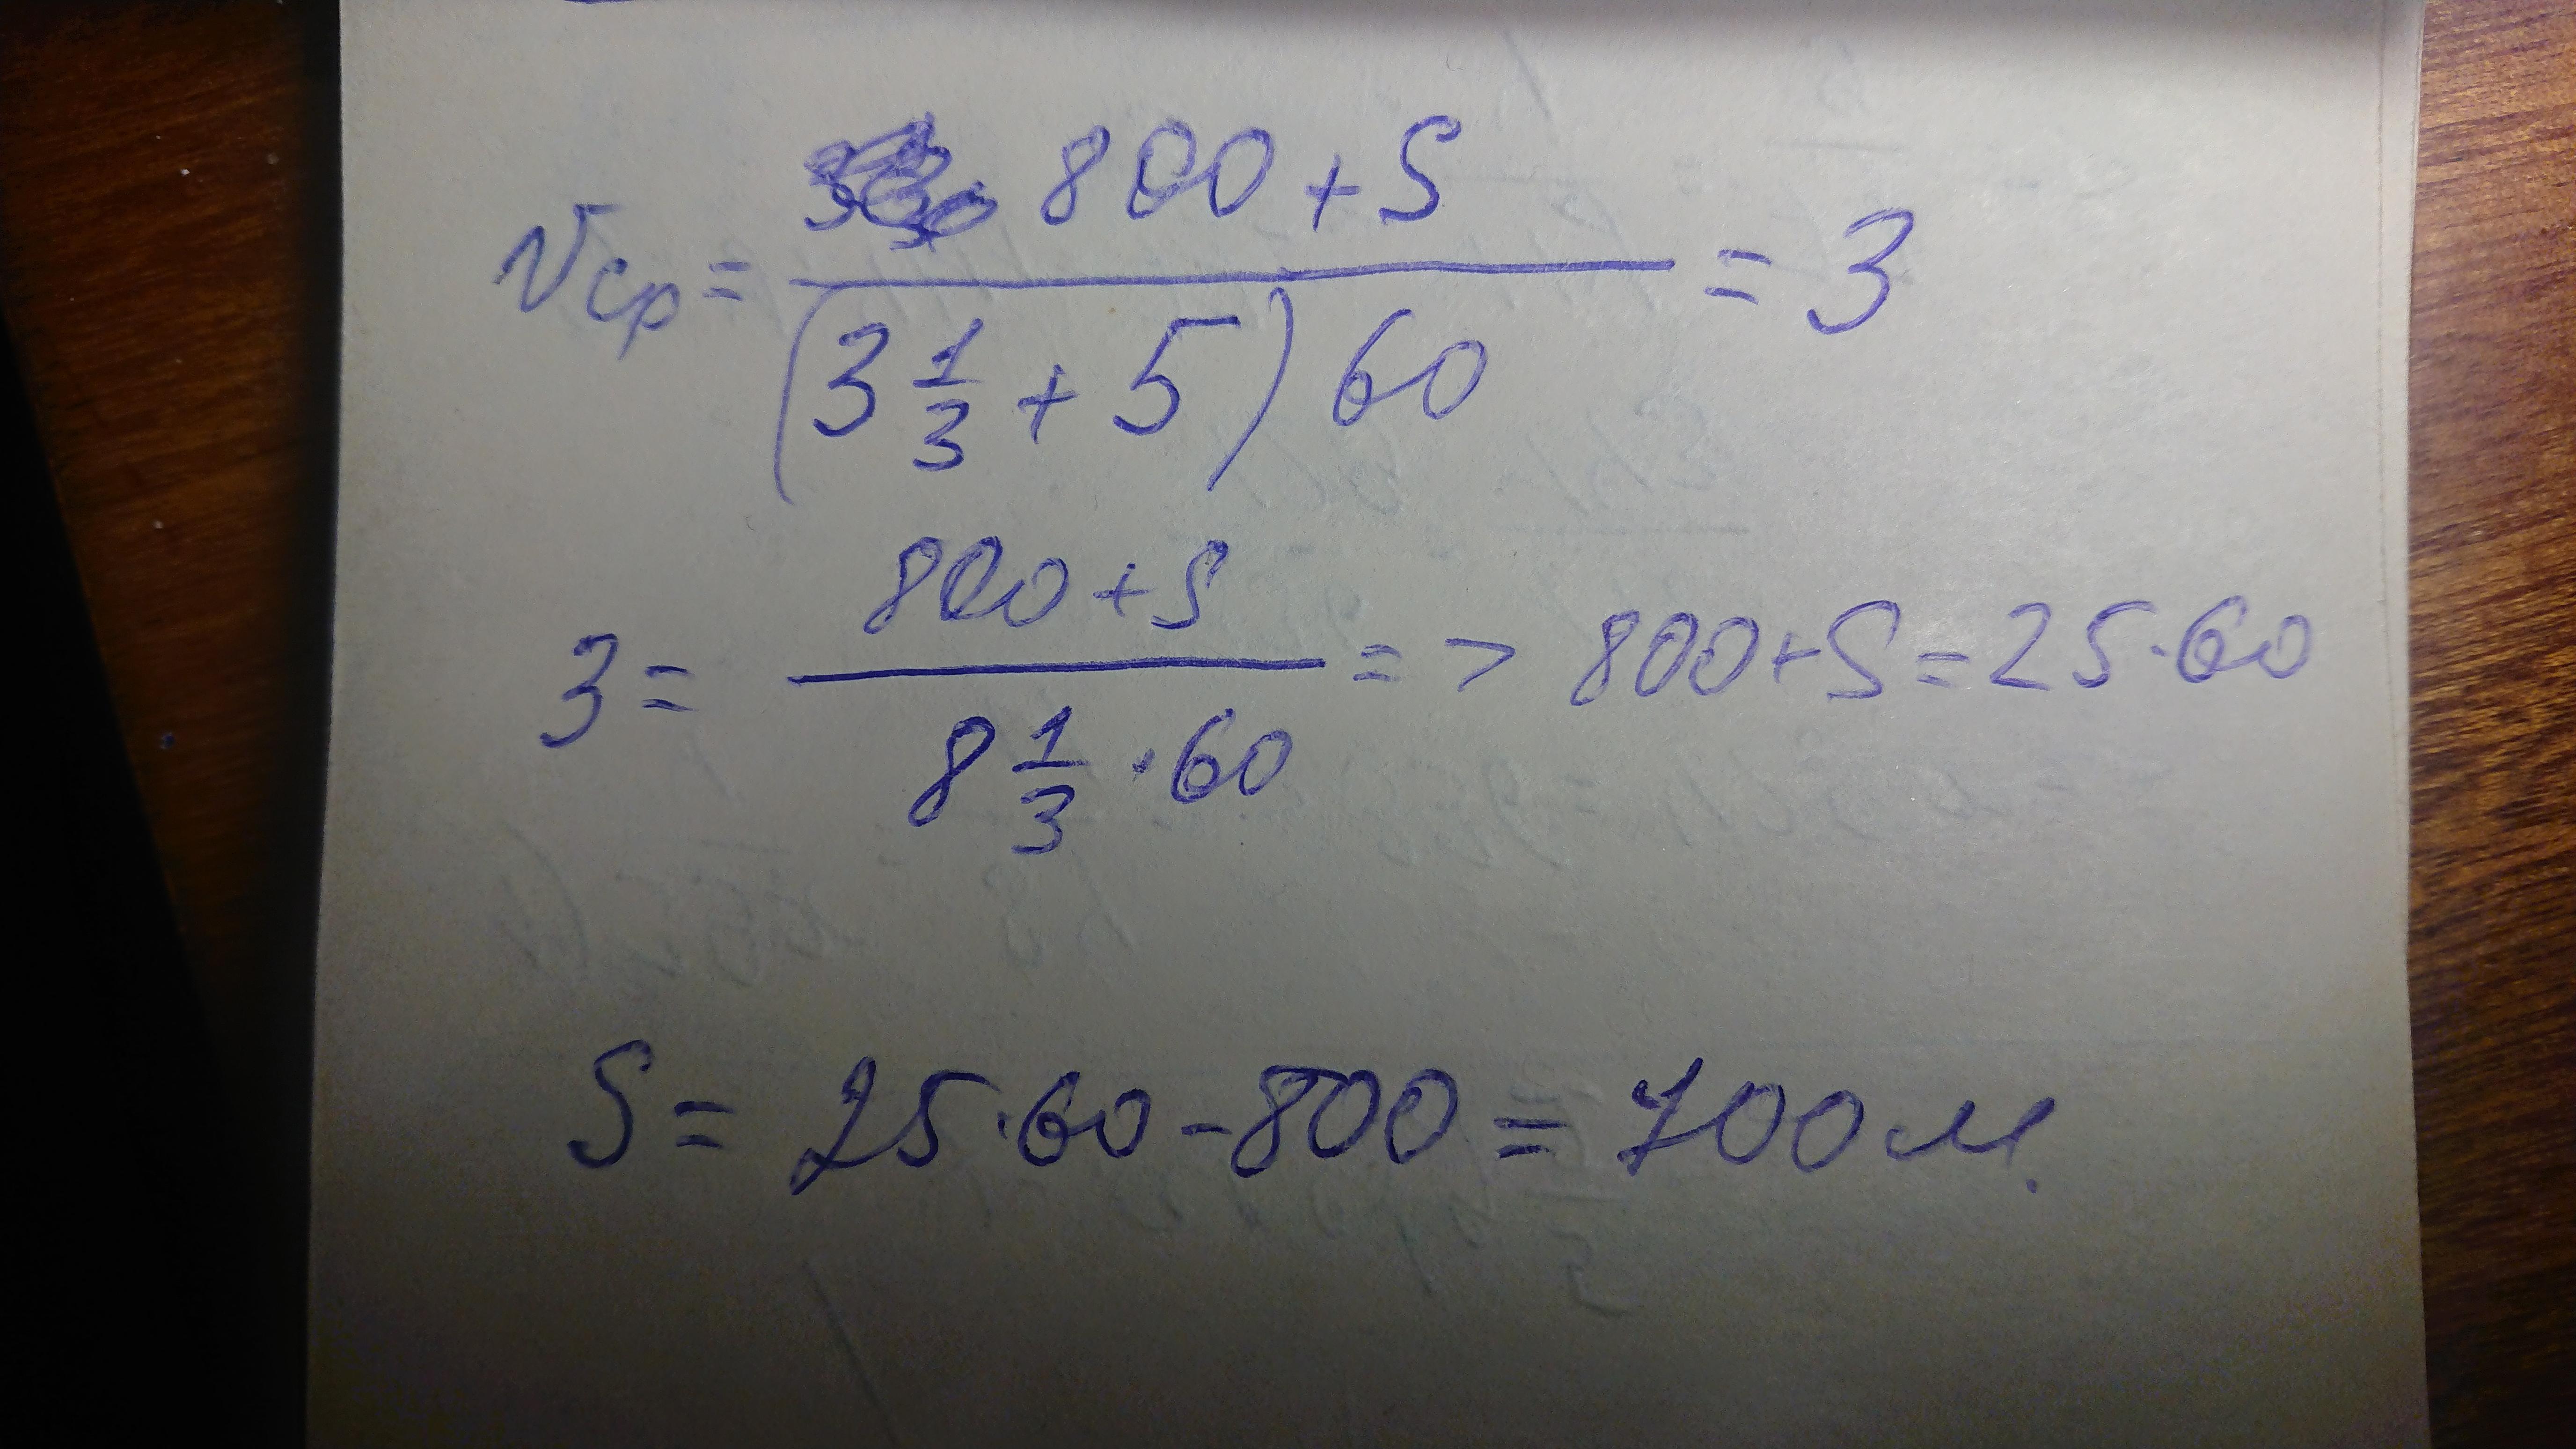 vср = 800 + S / (3 1/3 + 5) 60 = 3
3 = 800 + S / 8 1/3 · 60 => 800 + S = 25 · 60
S = 25 · 60 - 800 = 700 м.